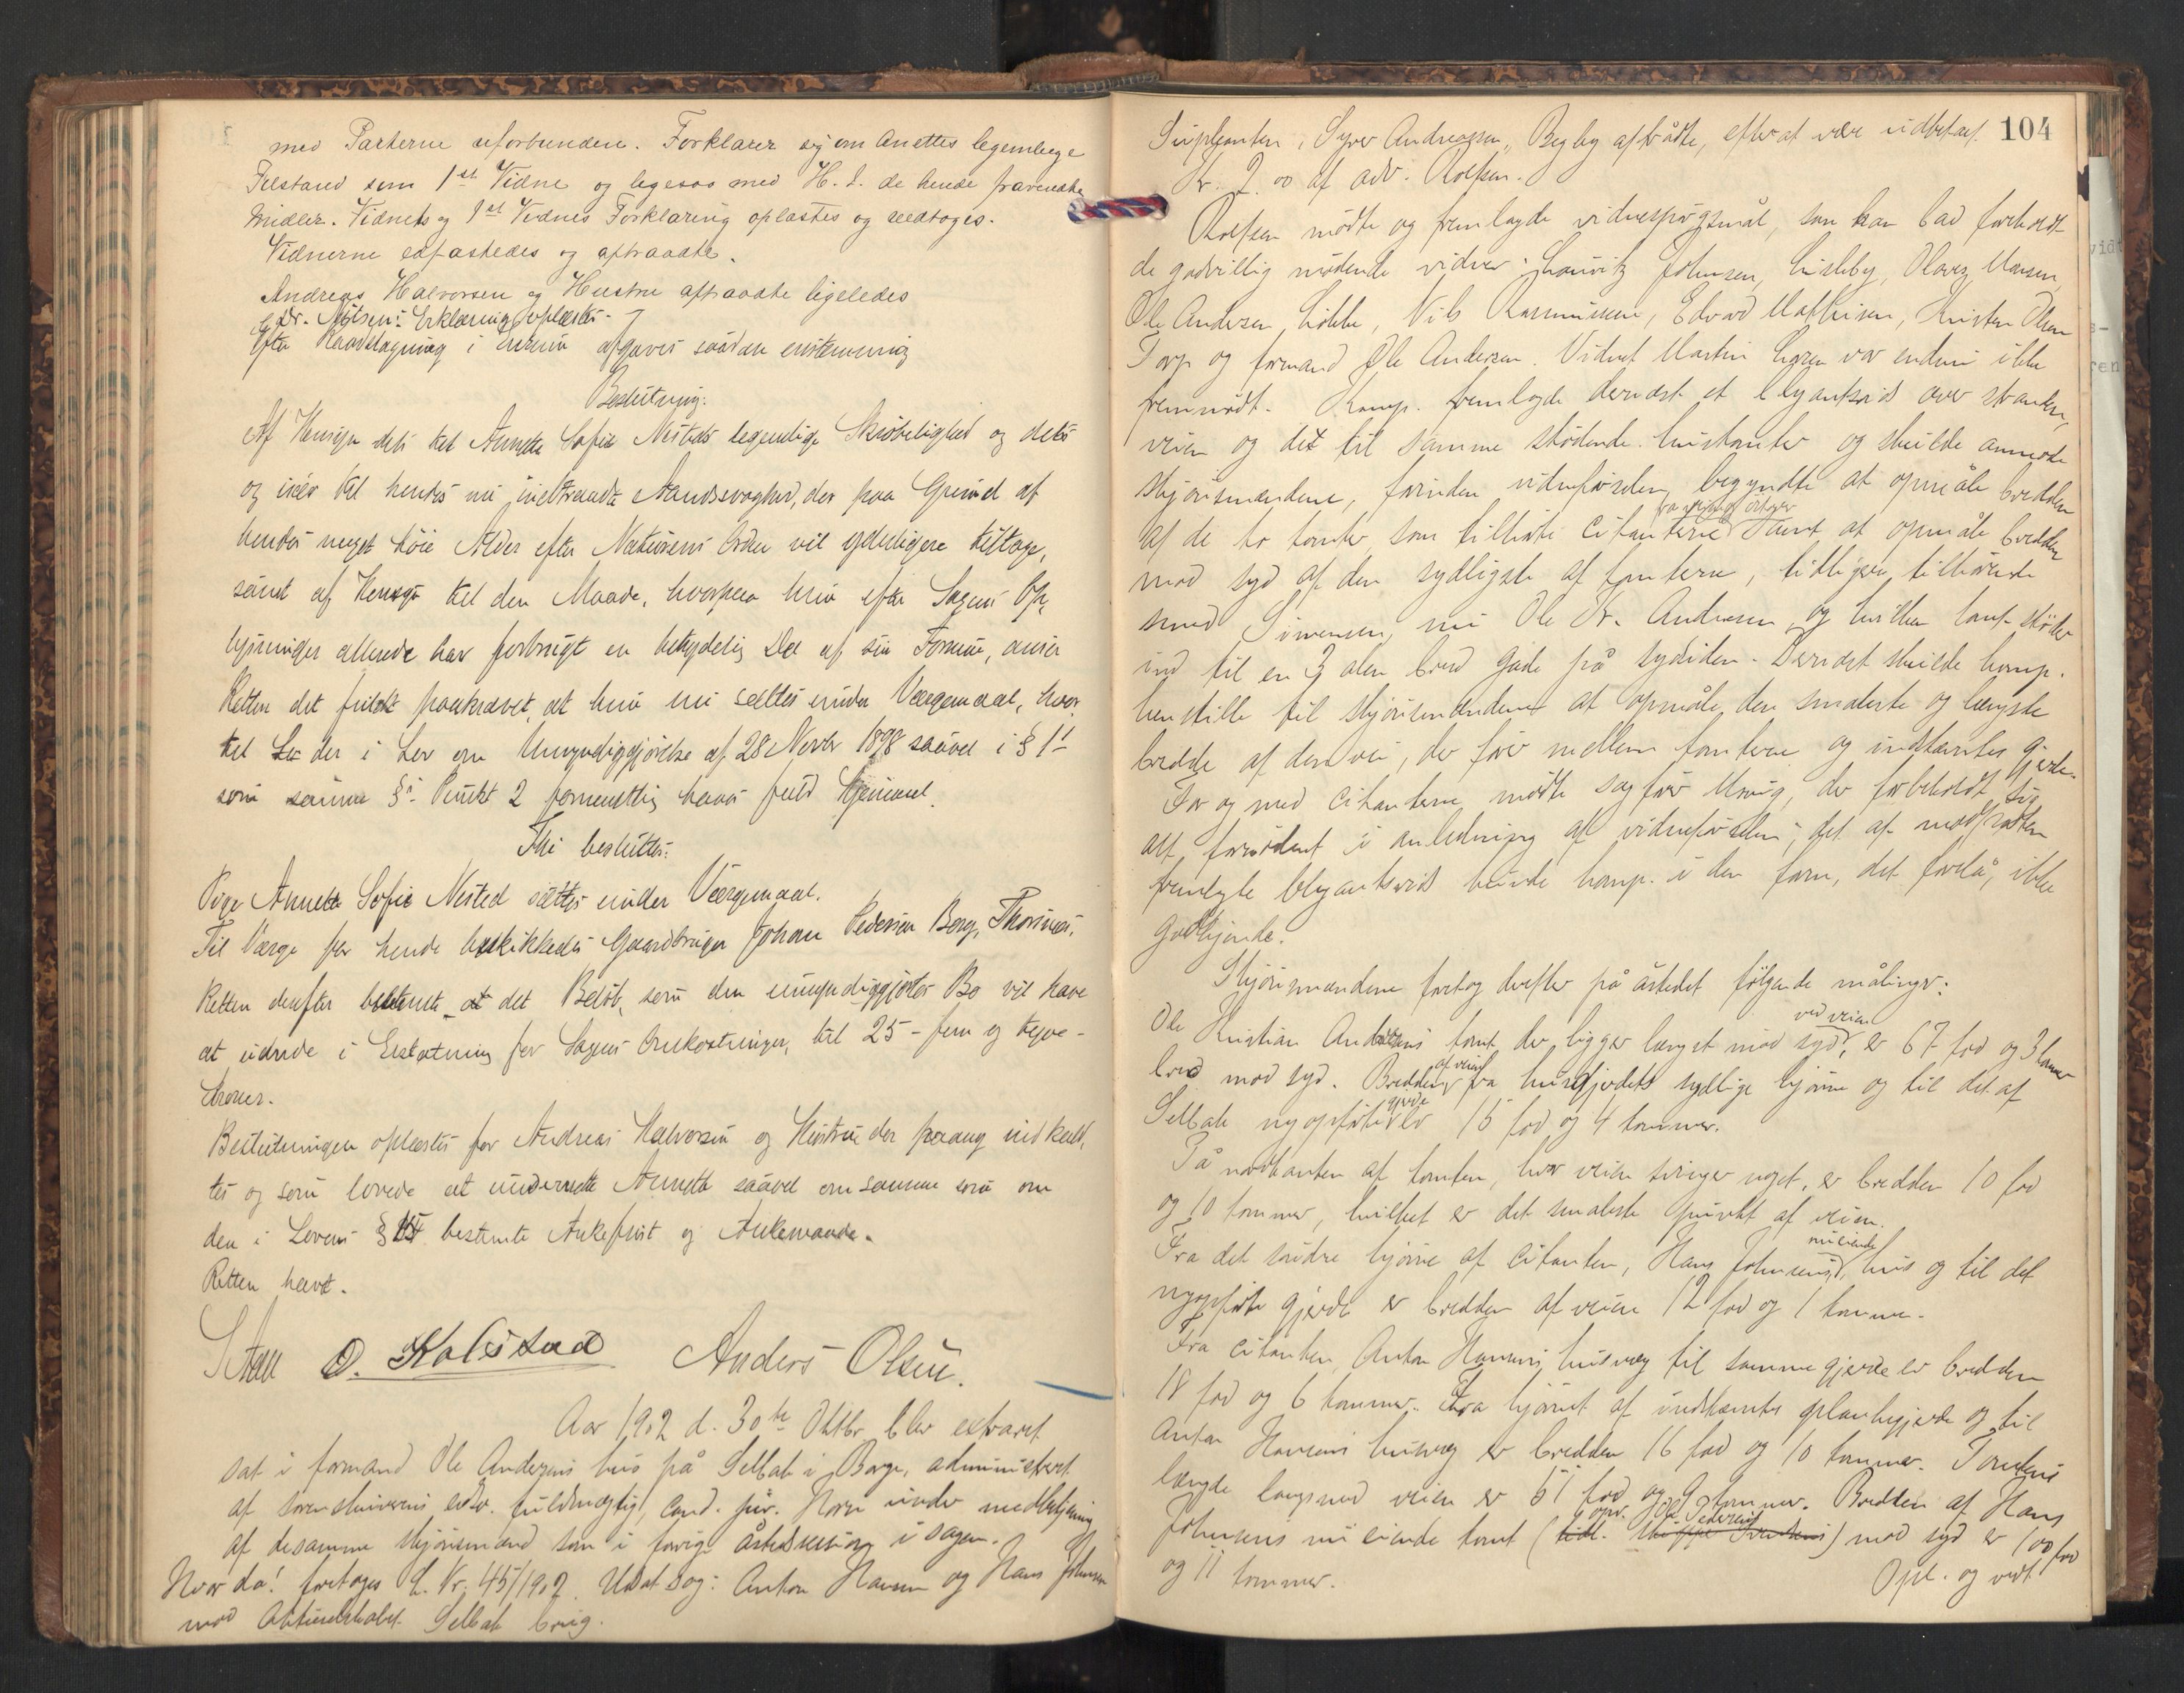 med Parterne uforbunden. Forklarer sig om Anettes legemlige
Tilstand som 1st Vidne og ligesaa med H. t. de hende fravendte
Midler. Vidnets og 1st Vidnes Forklaring oplæstes og vedtoges.
Vidnerne edfæstedes og aftraadte.
Andreas Halvorsen og Hustru aftraadte ligeledes
Dr. Erklæring oplæstes.
Efter Raadslagning i Enrum afgaves saadan enstemmig
Beslutning:
Af Hensyn dels til Annette Sofie Nesteds legemlige Skrøbelighed og dels
og især til hendes nu indtraadte Aandssvaghed, der paa Grund af
hendes meget høie Alder efter Naturens Orden vil yderligere tiltage,
samt af Hensyn til den Maade, hvorpaa hun efter Sagens Op-
lysninger allerede har forbrugt en betydelig Del af sin Formue, anser
Retten det fuldt paakrævet, at hun nu sættes under Værgemaal, hvor
til der i Lov om Umyndiggjørelse af 28 Novbr 1898 saavel i § 1
som samme §s Punkt 2 formentlig haves fuld Hjemmel.
Thi besluttes:
Pige Annette Sofie Nested sættes under Værgemaal.
Til Værge for hende beskikkedes Gaardbruger Johan Pedersen Borg, Thorsnes.
Retten derefter bestemte det Beløb, som den umyndiggjortes Bo vil have
at udrede i Erstatning for Sagens Omkostninger, til 25 - fem og tyve -
Kroner.
Beslutningen oplæstes for Andreas Halvorsen og Hustru der paany indkald-
tes og som lovede at underrette Annette saavel om samme som om
den i Lovens § bestemte Ankefrist og Ankemaade.
Retten hævet.
O. Kolstad Anders Olsen.
Aar 1902 d. 30te Oktbr blev extraret
sat i formand Ole Andersens hus på Selbak i Borge, administreret
af sorenskriverens edsv. fuldmægtig, cand. jur. Horn under medbetjening
af desamme skjønsmænd som i forrige åstedsession i sagen.
Hvor da! foretoges L. Nr. 45/1902. Udsat sag: Anton Hansen og Hans Johnsen
mod Aktieselskabet Selbak brug.
104
Suppleanten, Syver Andreassen, Begby aftrådte, efter at være udbetalt
Kr. 2.00 af adv. Roefsen.
Roefsen mødte og fremlagde vidnespørgsmål, som han bad foreholdt
de godvillig mødende vidner: Lauritz Johnsen, Lisleby, Olavez Hansen,
Ole Andersen Løkke, Nils Rasmussen, Edvard Mathisen, Kristen Olsen
Torp og formand Ole Andersen. Vidnet Martin var endnu ikke
fremmødt. Komp. fremlagde dernæst et blyantsrids over stranden,
veien og det til samme stødende hustomter og skulde anmode
skjønsmændene, forinden vidneførselen begyndte at opmåle bredden
af de to tomter som tilhørte citanterne samt at opmåle bredden
mod syd af den sydligste af tomterne, tidligere tilhørende
smed Simensen, nu Ole Kr. Andersen og hvilken tomt støder
ind til en 3 alen bred gade på sydsiden. Dernæst skulde komp.
henstille til skjønsmændene at opmåle den smaleste og længste
bredde af den vei, der fører mellem tomterne og indstævntes gjerde.
For og med citanterne mødte sagfører Moug, der forbeholdt sig
alt fornødent i anledning af vidneførselen; det af modparten
fremlagte blyantsrids kunde komp. i den form, det forelå, ikke
godkjende.
Skjønsmændene foretog derefter på åstedet følgende målinger:
Ole Kristian Andersens tomt der ligger længst mod syd ved veien, er 67 fod og 3 tommer
bred mod syd. Bredden af veien fra husgjerdets sydlige hjørne og til det af
Selbak nyopførte gjerde er 15 fod og 4 tommer.
På nordkanten af tomten, hvor veien svinger noget, er bredden 10 fod
og 10 tommer, hvilket er det smaleste punkt af veien.
Fra det søndre hjørne af citanten, Hans Johnsens nueiende hus og til det
nyopførte gjerde er bredden af veien 12 fod og 1 tomme.
Fra citanten, Anton Hansens husvæg til samme gjerde er bredden
18 fod og 6 tommer. Fra hjørnet af indstævntes plankegjerde og til
Anton Hansens husvæg er bredden 16 fod og 10 tommer. Tomtens
længde langsmed veien er 51 fod og 9 tommer. Bredden af Hans
Johnsens nu eiende tomt (opr. Pedersens) mod syd er 100 fod
og 11 tommer.
Opl. og vedt.